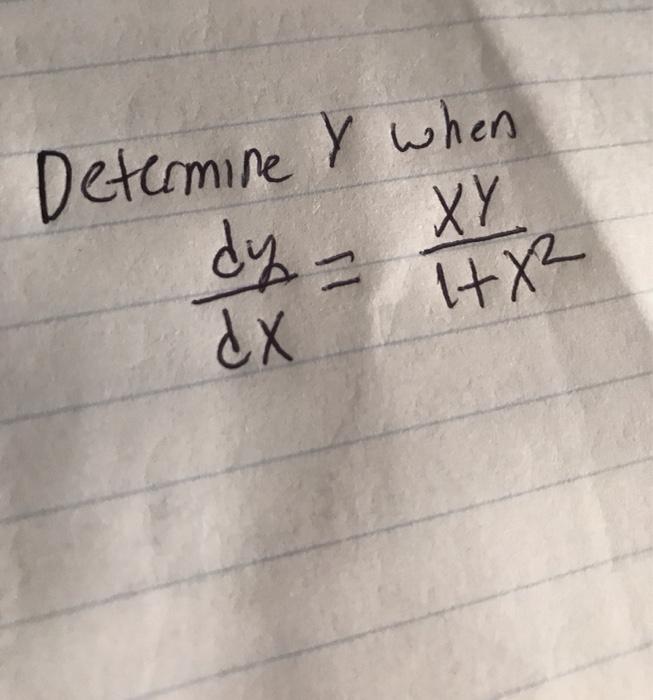 Determine Y when
dy/dx = XY/1+X²